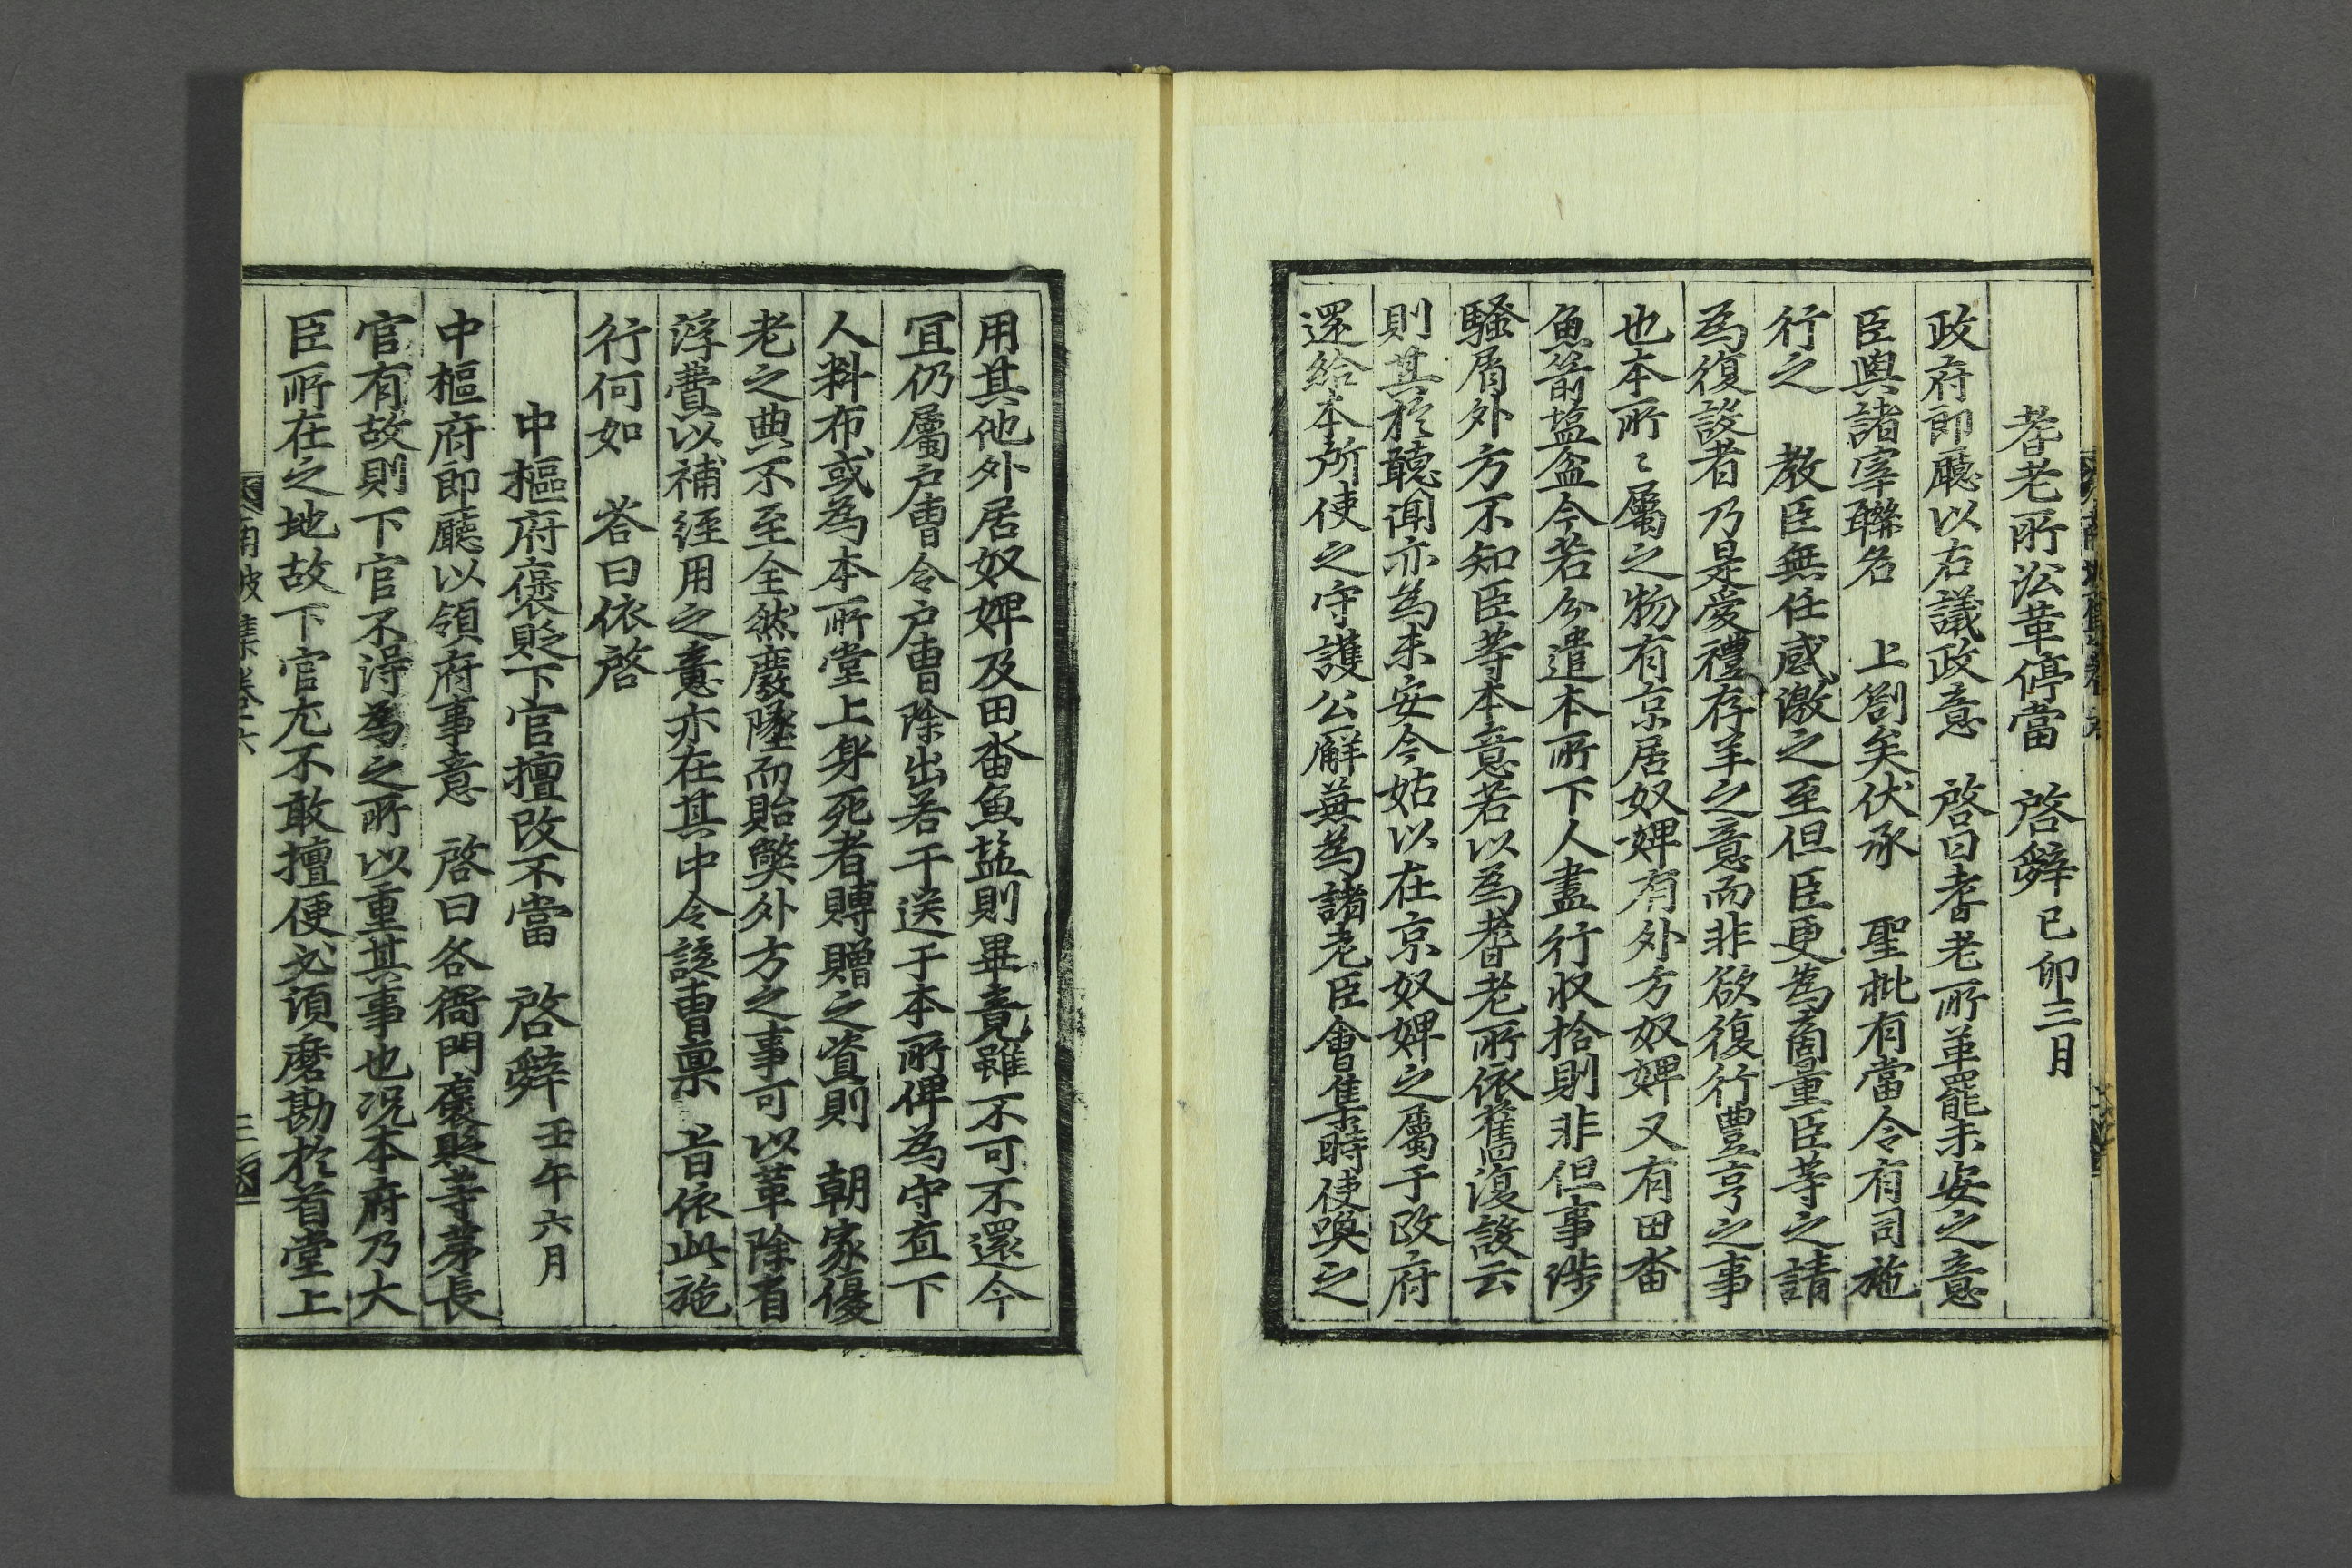 耆老所沿革停當 啓辭 己卯三月
政府郎廳以右議政意 啓曰耆老所革罷未安之意
臣與諸宰聯名 上劄矣伏承 聖批有當令有司施
行之 教臣無任感激之至但臣更爲商量臣等之請
爲復設者乃是愛禮存羊之意而非欲復行豊亨之事
也本所〻屬之物有京居奴婢有外方奴婢又有田畓
魚箭塩盆今若分遣本所下人盡行收拾則非但事渉
騷屑外方不知臣等本意若以爲耆老所依舊復設云
則其於聽聞亦爲未安今姑以在京奴婢之屬于政府
還給本所使之守護公廨兼爲諸老臣會集時使喚之
用其他外居奴婢及田畓魚塩則畢竟雖不可不還今
冝仍屬户曹令户曹除出若干送于本所俾爲守直下
人料布或爲本所堂上身死者賻贈之資則 朝家優
老之典不至全然廢墜而貽弊外方之事可以革除省
浮費以補經用之意亦在其中令該曹禀 旨依此施
行何如 答曰依啓
中樞府褒貶下官擅改不當 啓辭 壬午六月
中樞府郎廳以領府事意 啓曰各衙門褒貶等第長
官有故則下官不得爲之所以重其事也况本府乃大
臣所在之地故下官尤不敢擅便必須磨勘於首堂上